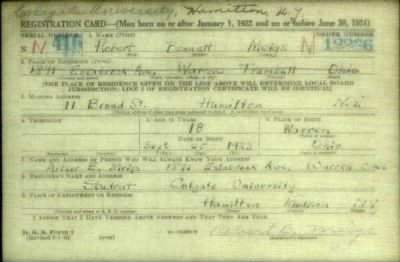 Colgate University, Hamilton N.Y.
REGISTRATION CARD—(Men born on or after January 1, 1922 and on or before June 30, 1924)
SERIAL NUMBER 1. NAME (Print) ORDER NUMBER
N Robert Bennett
2. PLACE OF RESIDENCE (Print)
1871 Estabrook Ave. Warren Trumbull Ohio
[THE PLACE OF RESIDENCE GIVEN ON THE LINE ABOVE WILL DETERMINE LOCAL BOARD
JURISDICTION; LINE 2 OF REGISTRATION CERTIFICATE WILL BE IDENTICAL]
3. MAILING ADDRESS
11 Broad St. Hamilton N.Y.
4. TELEPHONE 5. AGE IN YEARS 6. PLACE OF BIRTH
18 Warren
DATE OF BIRTH
Sept 25 1923 Ohio
7. NAME AND ADDRESS OF PERSON WHO WILL ALWAYS KNOW YOUR ADDRESS
1871 Estabrook Ave. Warren Ohio
8. EMPLOYER'S NAME AND ADDRESS
Student Colgate University
9. PLACE OF EMPLOYMENT OR BUSINESS
Hamilton Madison N.Y.
I AFFIRM THAT I HAVE VERIFIED ABOVE ANSWERS AND THAT THEY ARE TRUE.
D. S. S. Form 1